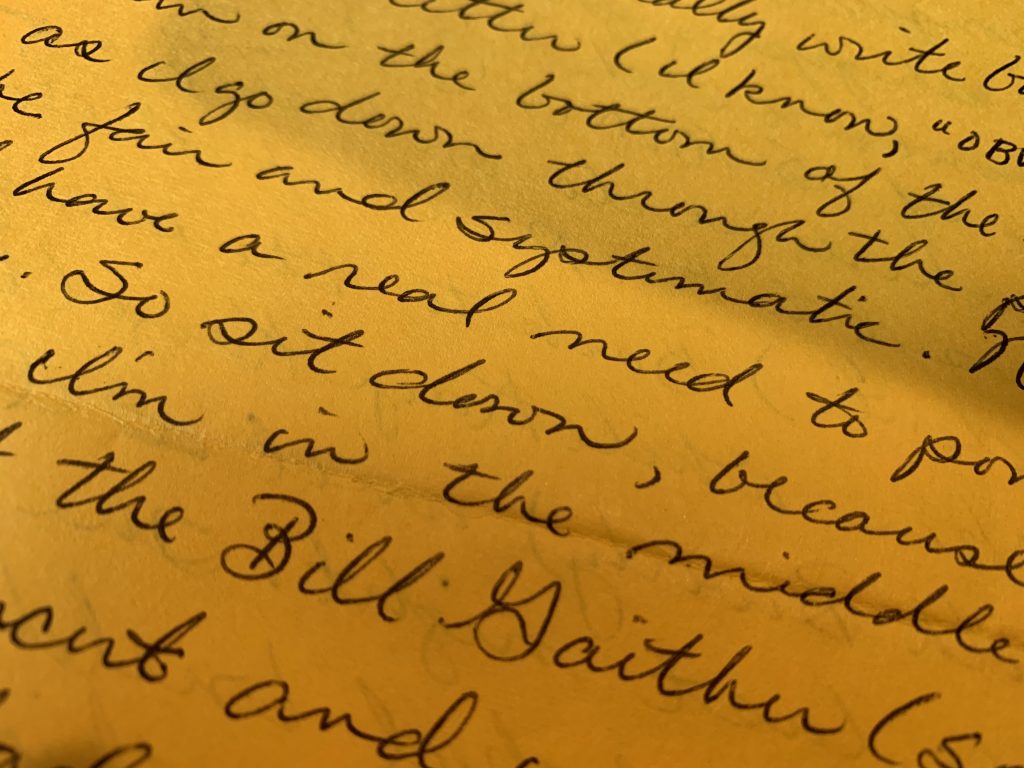 write
(I know, "OBV
on the bottom of the
as I go down through the
be fair and systematic.
have a real need to
So sit down, because
I'm in the middle
the Bill Gaither (s
and